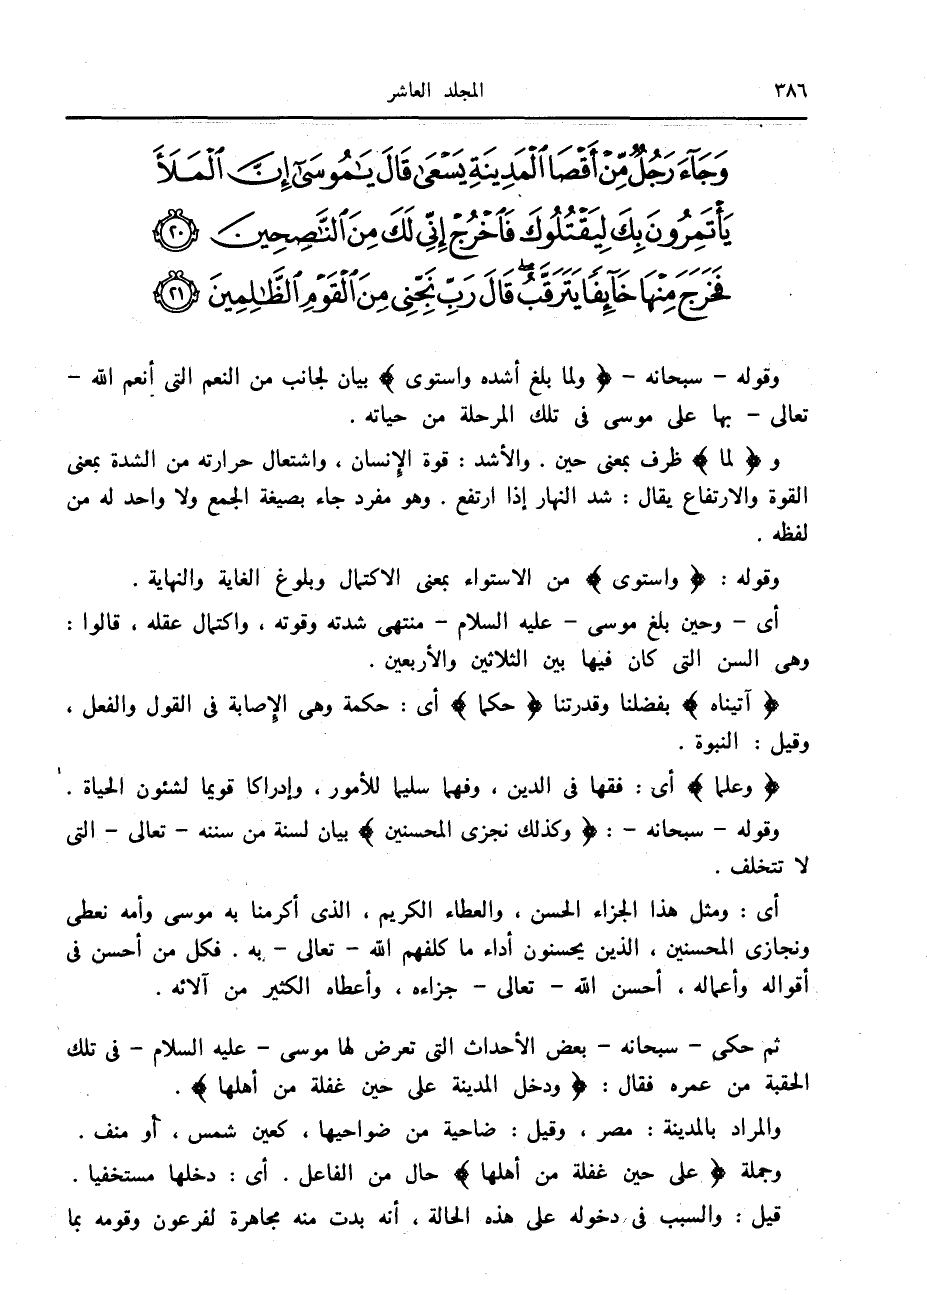 ٣٨٦ المجلد العاشر
وَجَآءَ رَجُلٌ مِّنْ أَقْصَا ٱلْمَدِينَةِ يَسْعَىٰ قَالَ يَٰمُوسَىٰٓ إِنَّ ٱلْمَلَأَ
يَأْتَمِرُونَ بِكَ لِيَقْتُلُوكَ فَٱخْرُجْ إِنِّى لَكَ مِنَ ٱلنَّٰصِحِينَ ٢٠
فَخَرَجَ مِنْهَا خَآئِفًا يَتَرَقَّبُ ۖ قَالَ رَبِّ نَجِّنِى مِنَ ٱلْقَوْمِ ٱلظَّٰلِمِينَ ٢١
وقوله - سبحانه - ﴿ ولما بلغ أشده واستوى ﴾ بيان لجانب من النعم التى أنعم الله -
تعالى - بها على موسى فى تلك المرحلة من حياته .
و ﴿ لما ﴾ ظرف بمعنى حين . والأشد : قوة الإنسان ، واشتعال حرارته من الشدة بمعنى
القوة والارتفاع يقال : شد النهار إذا ارتفع . وهو مفرد جاء بصيغة الجمع ولا واحد له من
لفظه .
وقوله : ﴿ واستوى ﴾ من الاستواء بمعنى الاكتمال وبلوغ الغاية والنهاية .
أى - وحين بلغ موسى - عليه السلام - منتهى شدته وقوته ، واكتمال عقله ، قالوا :
وهى السن التى كان فيها بين الثلاثين والأربعين .
﴿ آتيناه ﴾ بفضلنا وقدرتنا ﴿ حكما ﴾ أى : حكمة وهى الإصابة فى القول والفعل ،
وقيل : النبوة .
﴿ وعلما ﴾ أى : فقها فى الدين ، وفهما سليما للأمور ، وإدراكا قويما لشئون الحياة .
وقوله - سبحانه - : ﴿ وكذلك نجزى المحسنين ﴾ بيان لسنة من سننه - تعالى - التى
لا تتخلف .
أى : ومثل هذا الجزاء الحسن ، والعطاء الكريم ، الذى أكرمنا به موسى وأمه نعطى
ونجازى المحسنين ، الذين يحسنون أداء ما كلفهم الله - تعالى - به . فكل من أحسن فى
أقواله وأعماله ، أحسن الله - تعالى - جزاءه ، وأعطاه الكثير من آلائه .
ثم حكى - سبحانه - بعض الأحداث التى تعرض لها موسى - عليه السلام - فى تلك
الحقبة من عمره فقال : ﴿ ودخل المدينة على حين غفلة من أهلها ﴾ .
والمراد بالمدينة : مصر ، وقيل : ضاحية من ضواحيها ، كعين شمس ، أو منف .
وجملة ﴿ على حين غفلة من أهلها ﴾ حال من الفاعل . أى : دخلها مستخفيا .
قيل : والسبب فى دخوله على هذه الحالة ، أنه بدت منه مجاهرة لفرعون وقومه بما